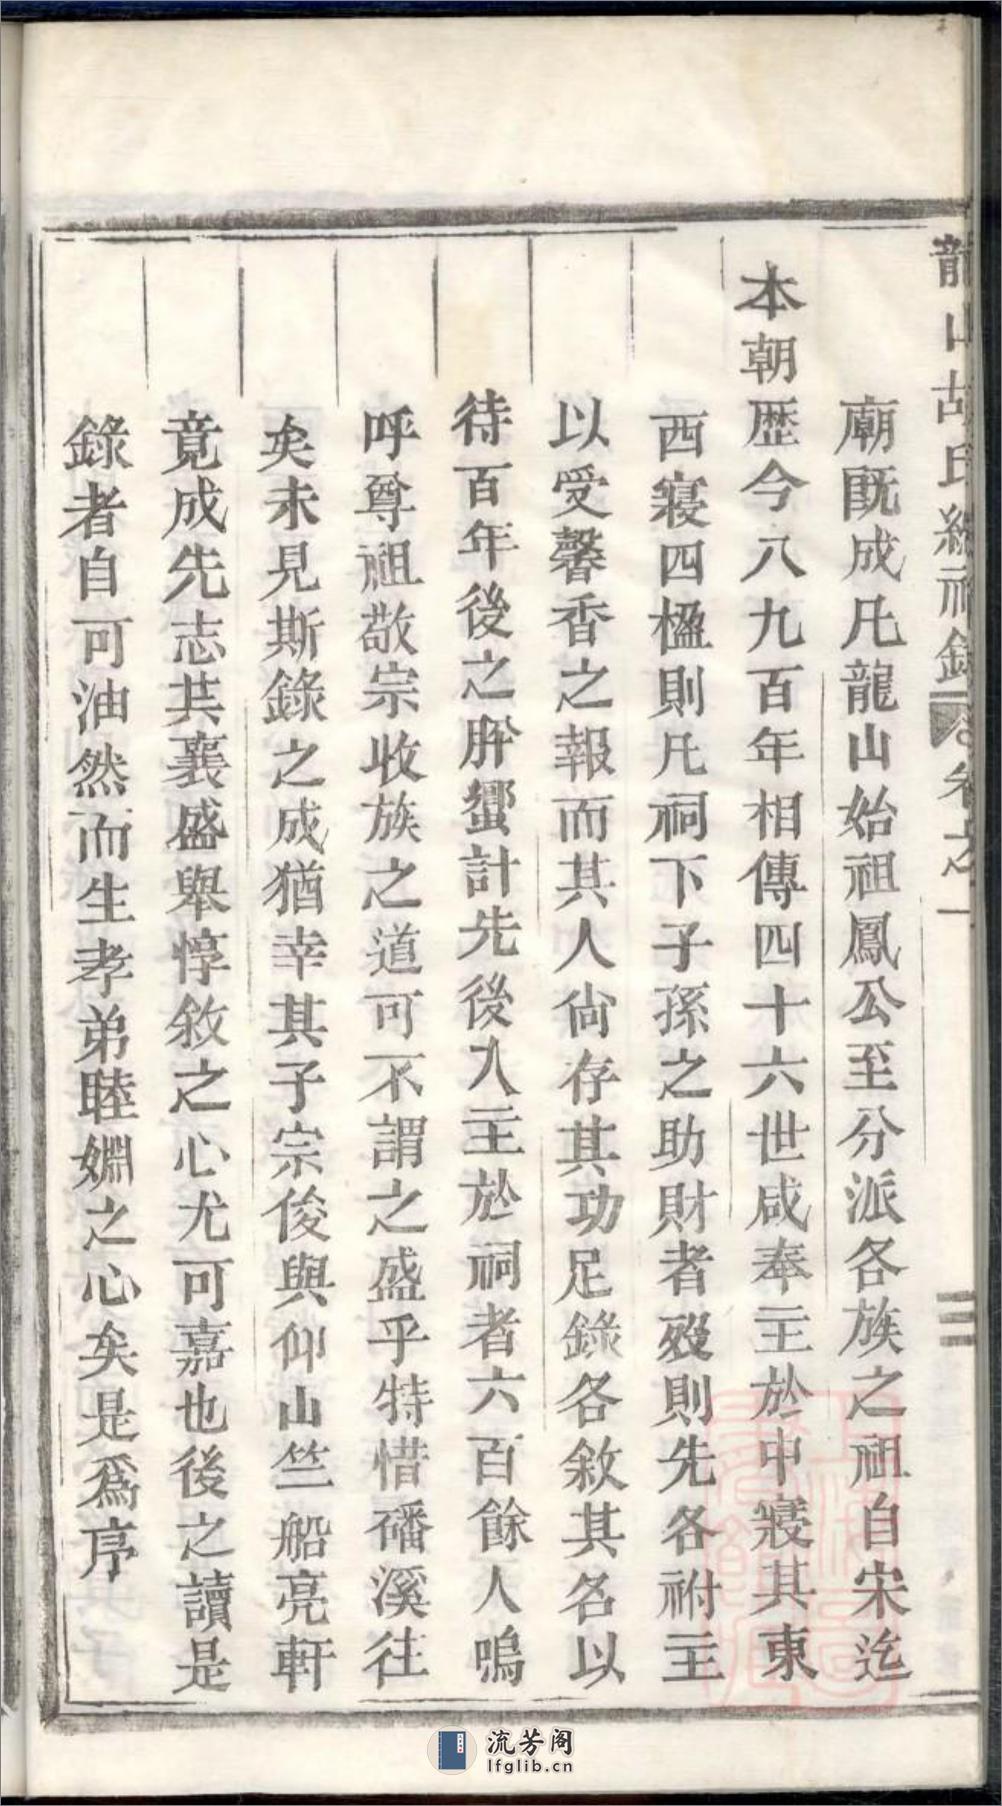 龍山胡氏總祠錄 卷之一 三
廟旣成凡龍山始祖鳳公至分派各族之祖自宋迄
本朝歷今八九百年相傳四十六世咸奉主於中寢其東
西寢四楹則凡祠下子孫之助財者歿則先各祔主
以受馨香之報而其人尙存其功足錄各敘其名以
待百年後之肸蠁計先後入主於祠者六百餘人嗚
呼尊祖敬宗收族之道可不謂之盛乎特惜磻溪往
矣未見斯錄之成猶幸其子宗俊與仰山竺船亮軒
竟成先志共襄盛舉惇敘之心尤可嘉也後之讀是
錄者自可油然而生孝弟睦婣之心矣是爲序
流芳阁
lfglib.cn